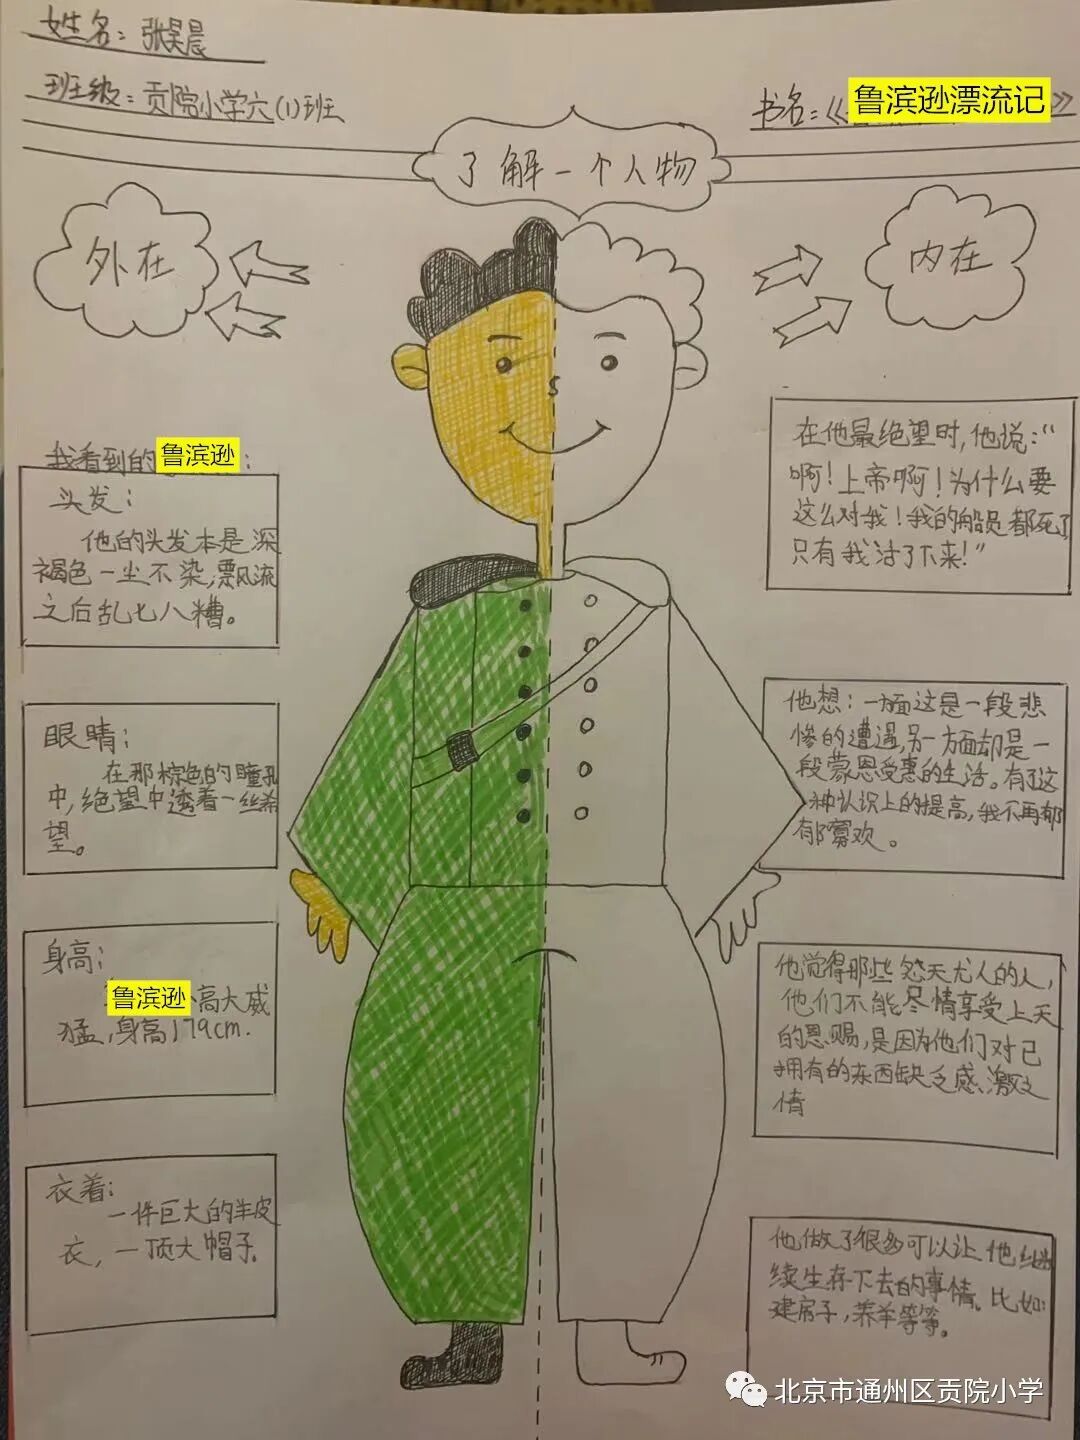 姓名：张昊晨
班级：贡院小学六(1)班
书名：《鲁滨逊漂流记》
了解一个人物
外在
内在
我看到的鲁滨逊：
头发：
他的头发本是深
褐色一尘不染，飘流
之后乱七八糟。
眼睛：
在那棕色的瞳孔
中，绝望中透着一丝希
望。
身高：
鲁滨逊高大威
猛，身高179cm.
衣着：
一件巨大的羊皮
衣，一顶大帽子。
在他最绝望时，他说：“
啊！上帝啊！为什么要
这么对我！我的船员都死了
只有我活了下来！”
他想：一方面这是一段悲
惨的遭遇，另一方面却是一
段蒙恩受惠的生活。有了这
种认识上的提高，我不再郁
郁寡欢。
他觉得那些怨天尤人的人，
他们不能尽情享受上天
的恩赐，是因为他们对已
拥有的东西缺乏感激之
情
他做了很多可以让他继
续生存下去的事情。比如：
建房子，养羊等等。
北京市通州区贡院小学